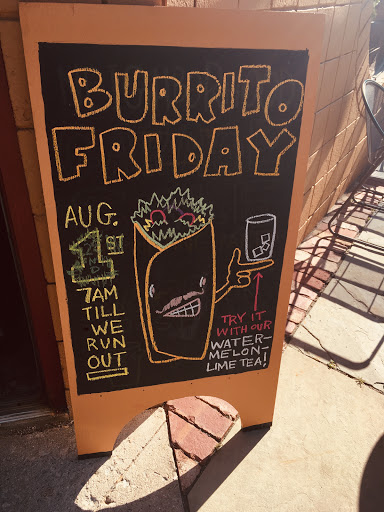 BURRITO
FRIDAY
AUG.
1ST
7AM
TILL
WE
RUN
OUT
TRY IT
WITH OUR
WATER-
MELON-
LIME TEA!